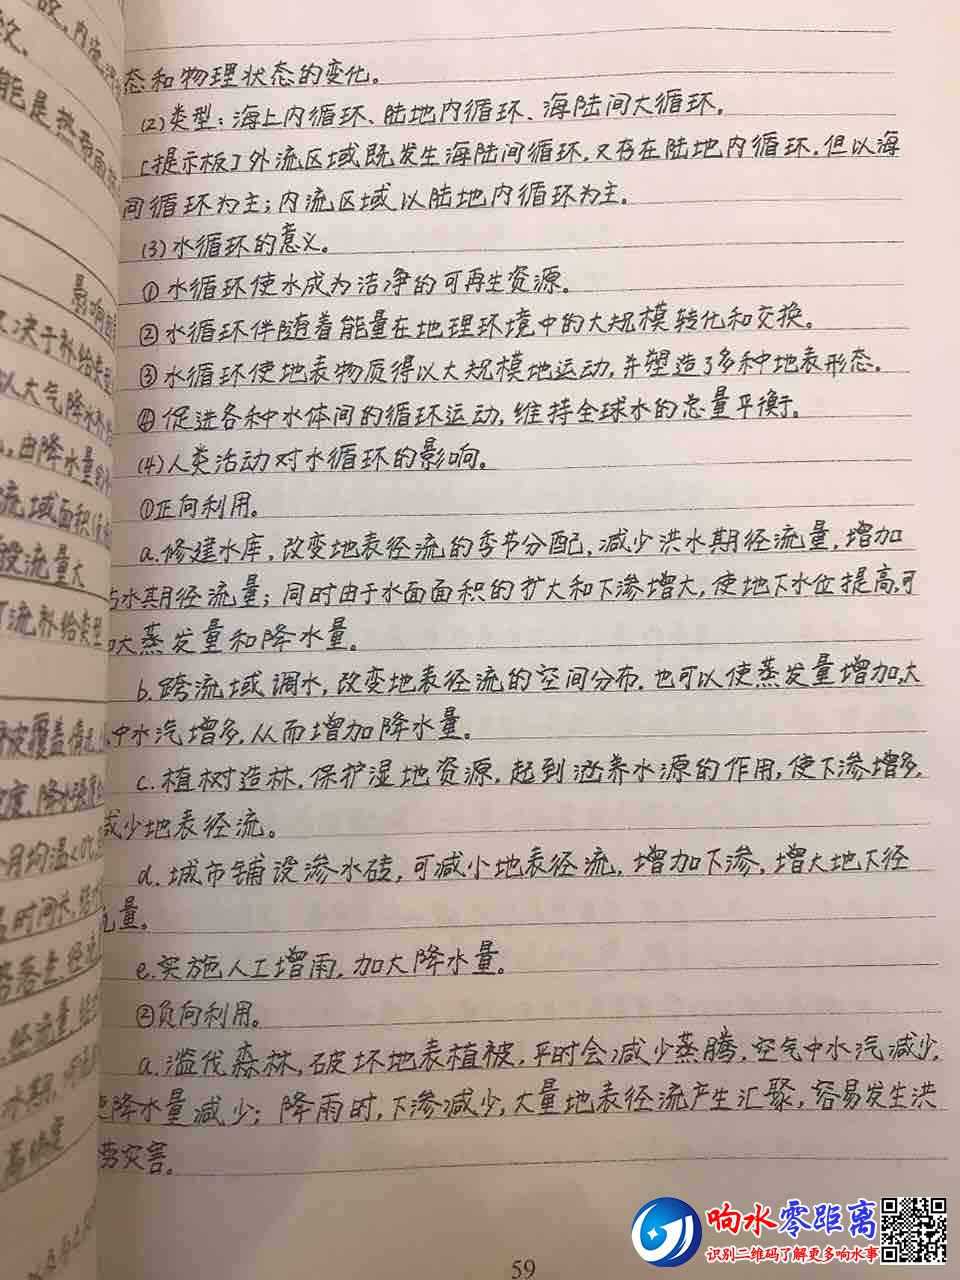 态和物理状态的变化。
(2)类型:海上内循环、陆地内循环、海陆间大循环。
[提示板]外流区域既发生海陆间循环,又存在陆地内循环,但以海
间循环为主;内流区域以陆地内循环为主。
(3)水循环的意义。
①水循环使水成为洁净的可再生资源。
②水循环伴随着能量在地理环境中的大规模转化和交换。
③水循环使地表物质得以大规模地运动,并塑造了多种地表形态。
④促进各种水体间的循环运动,维持全球水的总量平衡。
(4)人类活动对水循环的影响。
①正向利用。
a.修建水库,改变地表径流的季节分配,减少洪水期径流量,增加
水期径流量;同时由于水面面积的扩大和下渗增大,使地下水位提高,可
大蒸发量和降水量。
b.跨流域调水,改变地表径流的空间分布,也可以使蒸发量增加,大
中水汽增多,从而增加降水量。
c.植树造林,保护湿地资源,起到涵养水源的作用,使下渗增多,
减少地表径流。
d.城市铺设渗水砖,可减小地表径流,增加下渗,增大地下径
量。
e.实施人工增雨,加大降水量。
②负向利用。
a.滥伐森林,破坏地表植被,平时会减少蒸腾,空气中水汽减少,
使降水量减少;降雨时,下渗减少,大量地表径流产生汇聚,容易发生洪
涝灾害。
59
能是热带雨
影响因
决于补给类型
以大气降水补给
由降水量
流域面积
流量大
河流补给类型
被覆盖情况
度、降水强度
月均温<0℃
时间长
径流量
响水零距离
识别二维码了解更多响水事